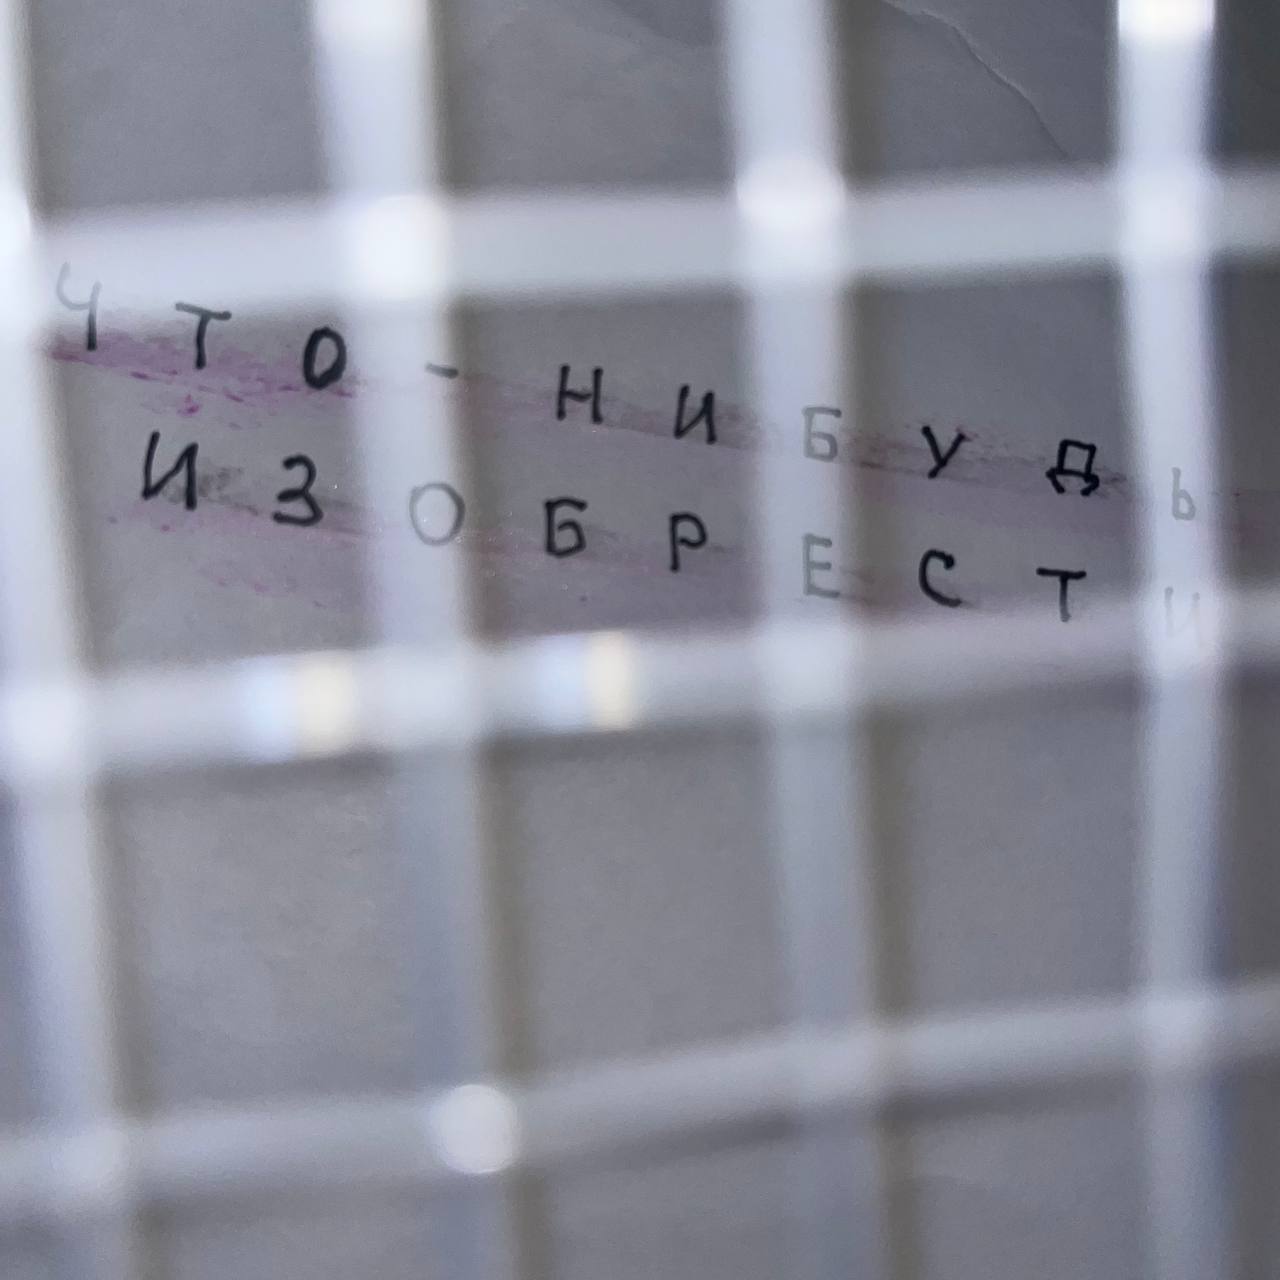 ЧТО-НИБУДЬ
ИЗОБРЕСТИ